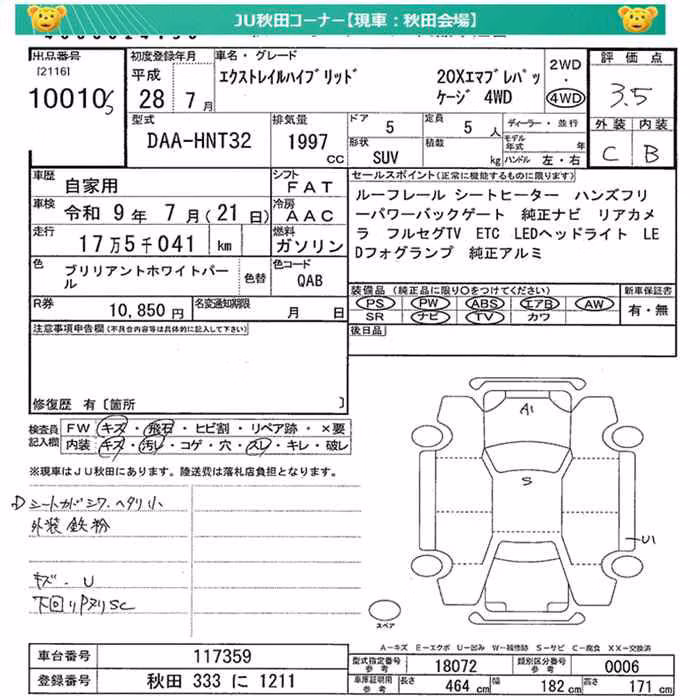 JU秋田コーナー【現車：秋田会場】
出品番号
[2116]
10010
初度登録年月
平成
28 年 7 月
車名・グレード
エクストレイルハイブリッド
20Xエマブレパッ
ケージ 4WD
2WD
・
4WD
評価点
3.5
外装 内装
C B
型式
DAA-HNT32
排気量
1997
CC
ドア 5
定員 5 人
形状 SUV
積載 kg
ディーラー・並行
モデル年式 年
ハンドル 左・右
車歴 自家用
シフト FAT
車検 令和 9 年 7 月(21 日)
冷房 AAC
走行 17万5千041 km
燃料 ガソリン
色 ブリリアントホワイトパー
ル
色替
色コード
QAB
R券 10,850 円
名変通知期限 月 日
セールスポイント(正常に機能するものに限ります)
ルーフレール シートヒーター ハンズフリ
ーパワーバックゲート 純正ナビ リアカメ
ラ フルセグTV ETC LEDヘッドライト LE
Dフォグランプ 純正アルミ
装備品(純正品に限り○をつけてください)
PS PW ABS エアB AW
SR ナビ TV カワ
新車保証書
有・無
後日品
注意事項申告欄(不具合内容等は具体的に記入して下さい)
修復歴 有〔箇所 〕
検査員
記入欄
FW キズ・飛石・ヒビ割・リペア跡・×要
内装 キズ・汚レ・コゲ・穴・スレ・キレ・破レ
※現車はJU秋田にあります。陸送費は落札店負担となります。
シワ・ヘタリ小
外装鉄粉
キズ・U
下回りPヌリSC
A1
S
U1
スペア
A－キズ E－エクボ U－凹み W－補修跡 S－サビ C－腐食 XX－交換済
車台番号 117359
登録番号 秋田 333 に 1211
型式指定番号
参考
18072
類別区分番号
参考
0006
車庫証明用
参考
長さ 464 cm
幅 182 cm
高さ 171 cm